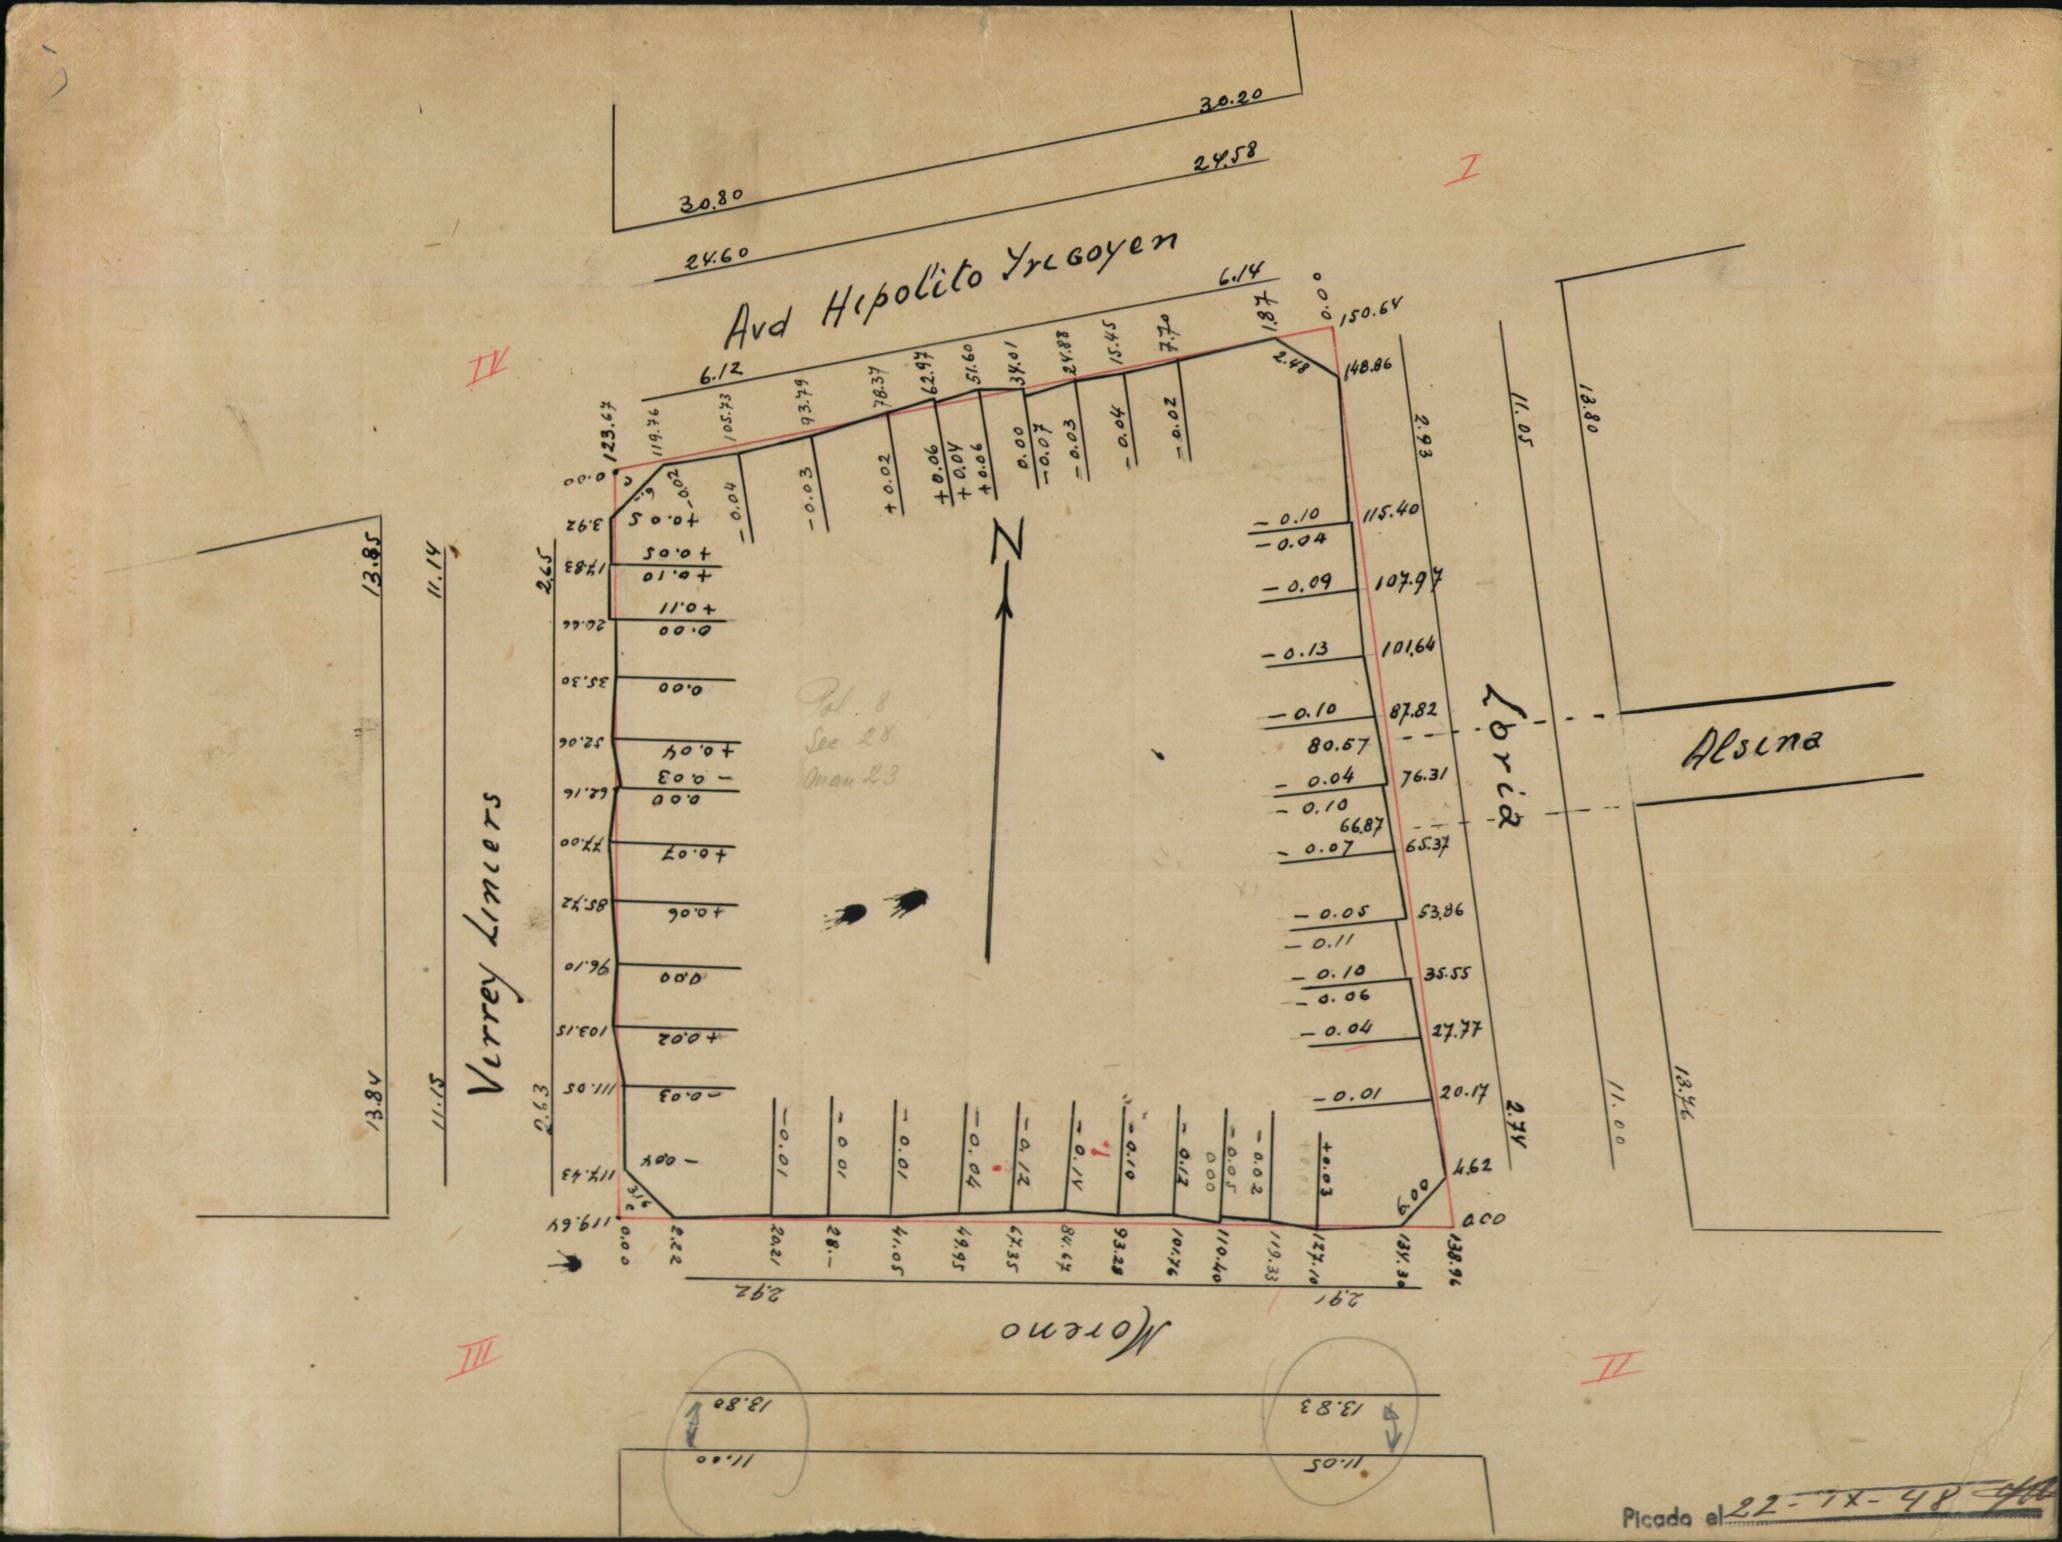 30.20
30.80
24.58
24.60
I
Avd Hipolito Yrigoyen
6.14
6.12
IV
123.67
0.00
119.76
105.73
93.79
78.37
62.97
51.60
34.01
24.88
15.45
7.70
1.87
0.00
150.64
2.48
148.86
-0.02
-0.04
-0.03
+0.02
+0.06
+0.04
+0.06
0.00
-0.07
-0.03
-0.04
-0.02
N
13.85
13.84
11.14
11.15
Virrey Liniers
2.65
2.63
3.92
17.83
26.66
35.30
52.06
62.16
77.00
85.72
96.10
103.15
111.05
117.43
119.64
+0.05
+0.05
+0.10
+0.11
0.00
0.00
+0.04
-0.03
0.00
+0.07
+0.06
0.00
+0.02
-0.03
-0.04
3.16
Pol. 8
Sec 28
Man 23
-0.10
-0.04
115.40
-0.09
107.97
-0.13
101.64
-0.10
87.82
80.57
-0.04
76.31
-0.10
66.87
-0.07
65.37
-0.05
53.86
-0.11
-0.10
35.55
-0.06
-0.04
27.77
-0.01
20.17
4.62
0.00
2.93
2.74
Loria
11.05
11.00
13.80
13.76
Alsina
-0.01
-0.01
-0.01
-0.04
-0.12
-0.14
-0.10
-0.12
-0.05
0.00
-0.02
+0.03
0.00
2.22
20.21
28.-
41.05
49.95
67.35
84.67
93.28
101.76
110.40
119.33
127.10
134.30
138.96
2.92
2.91
Moreno
III
II
13.80
13.83
11.00
11.05
Picado el 22-IX-48